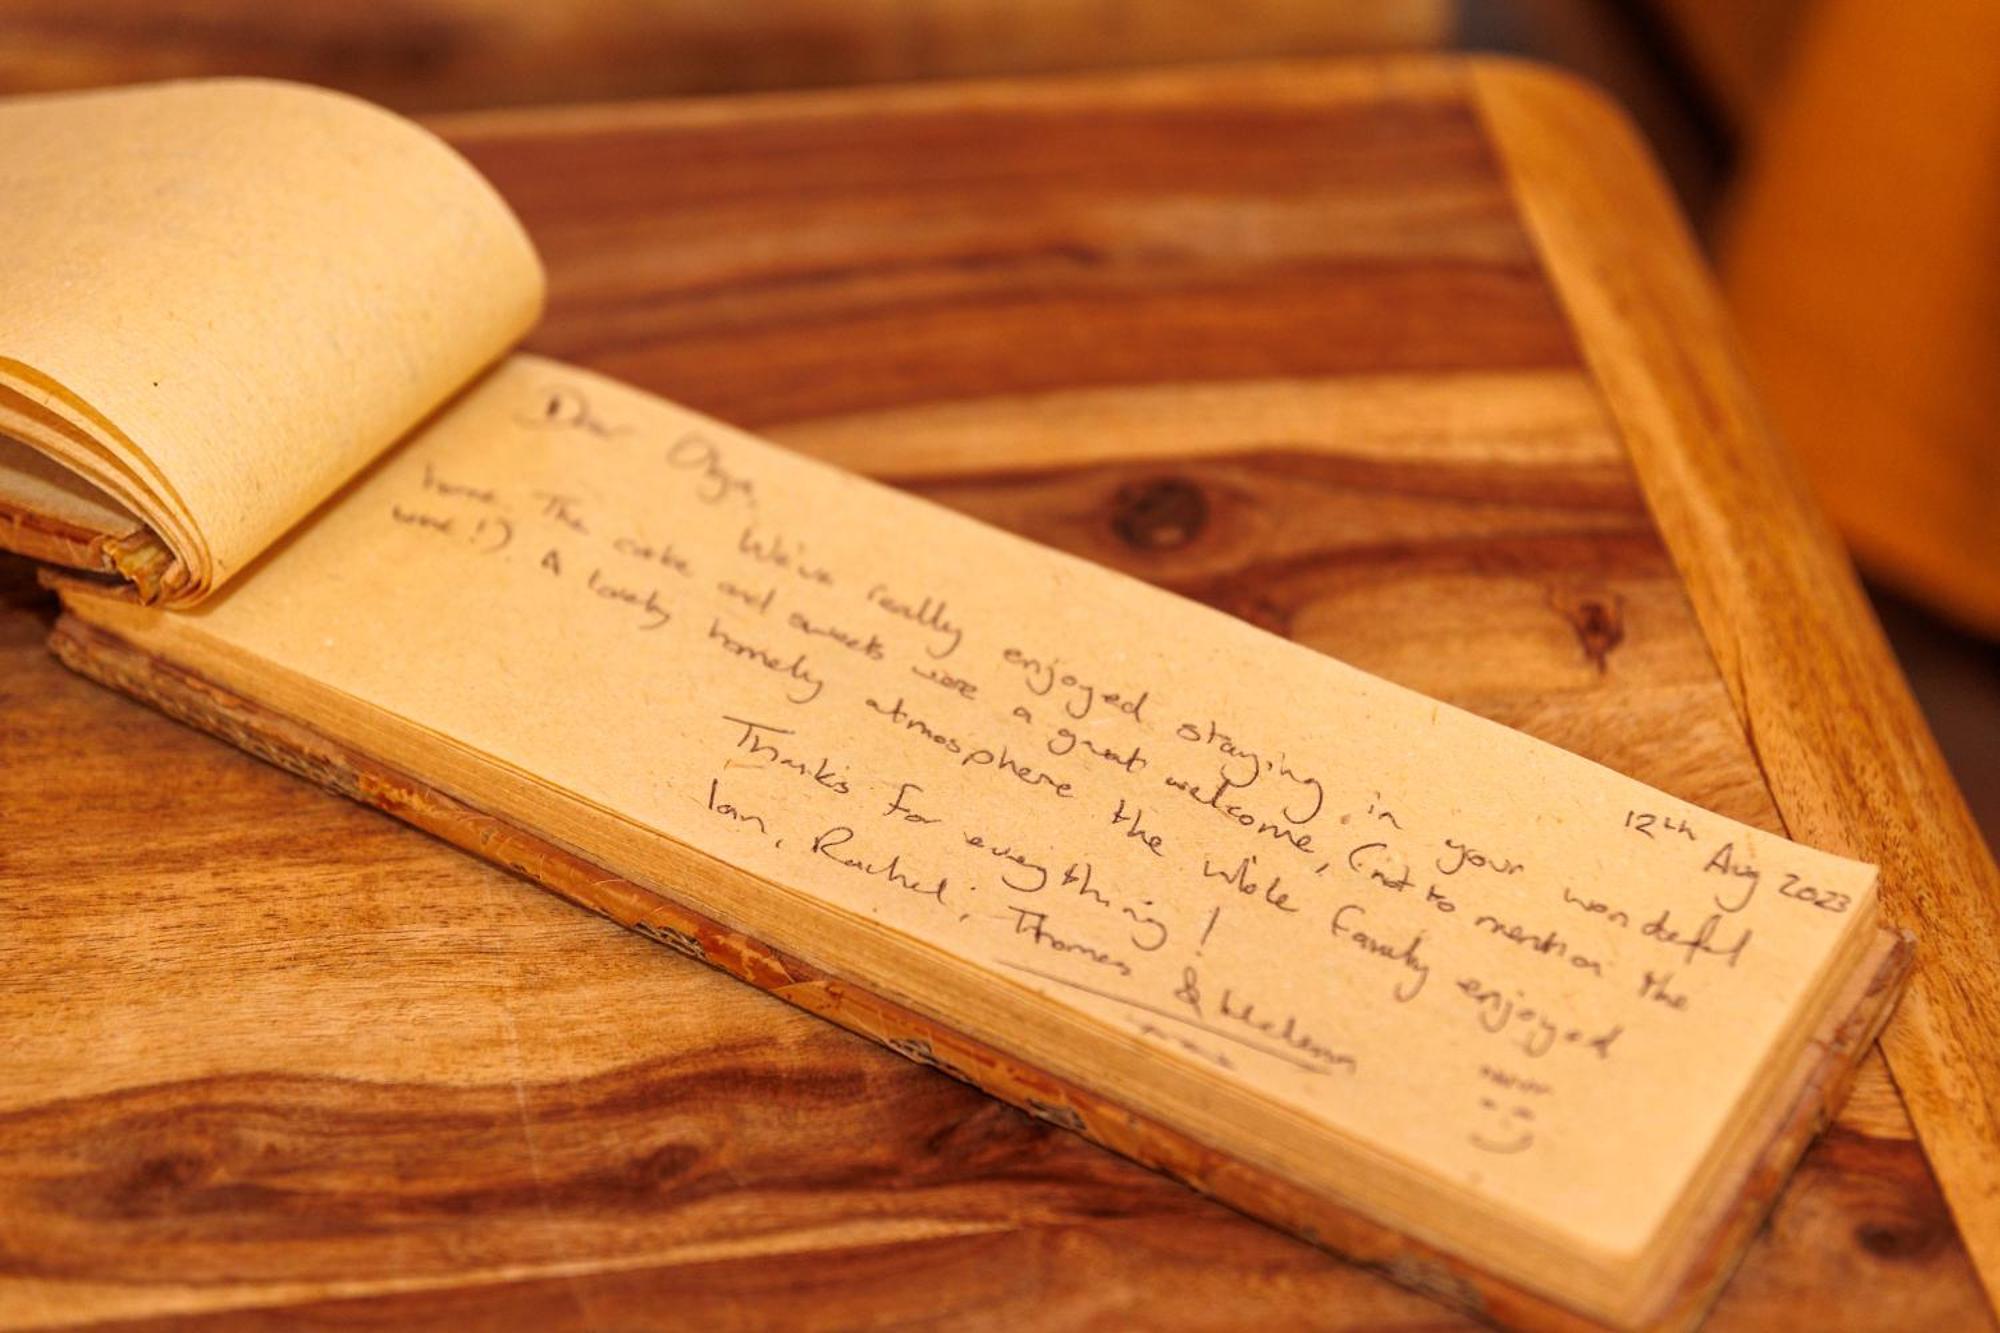 12th Aug 2023
Dear Olga,
We've really enjoyed staying in your wonderful
home. The cake and sweets were a great welcome, (not to mention the
wine!). A lovely homely atmosphere the whole family enjoyed
Thanks for everything!
Ian, Rachel, Thomas &